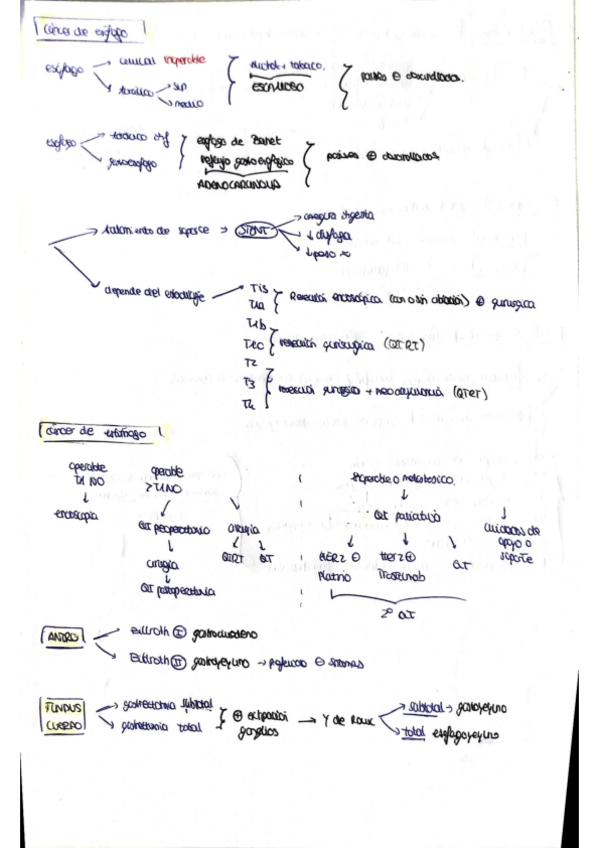 Cáncer de esófago
esófago → cervical inoperable
→ torácico → sup
→ medio
alcohol + tabaco.
ESCAMOSO
países ⊖ desarrollados.
esófago → torácico inf
→
esófago de Barret
reflujo gastroesofágico
ADENOCARCINOMA
países ⊕ desarrollados
→ tratamiento de soporte → SIEMPRE
→ ingesta
→ ↓ disfagia
→ ↓ peso
→ depende del estadiaje →
Tis
T1a
Resección endoscópica (con o sin ablación) ⊕ quirúrgica
T1b
T1c
T2
resección quirúrgica (QTRT)
T3
T4
resección quirúrgica + neoadyuvancia (QTRT)
Cáncer de estómago
operable
T1 N0
↓
endoscopia
operable
≥T1N0
QT preoperatoria
↓
cirugía
↓
QT postoperatoria
cirugía
QTRT QT
inoperable o metastásico.
↓
QT paliativa
HER2 ⊖
Platino
HER2 ⊕
Trastuzumab
QT
2º QT
cuidados de
apoyo o
soporte
ANTRO
→ Billroth Ⅰ gastroduodeno
→ Billroth Ⅱ gastroyeyuno → ⊖ síntomas
FUNDUS
CUERPO
→ gastrectomía subtotal
→ gastrectomía total
⊕ extirpación
ganglios
→ Y de Roux
→ subtotal → gastroyeyuno
→ total esofagoyeyuno